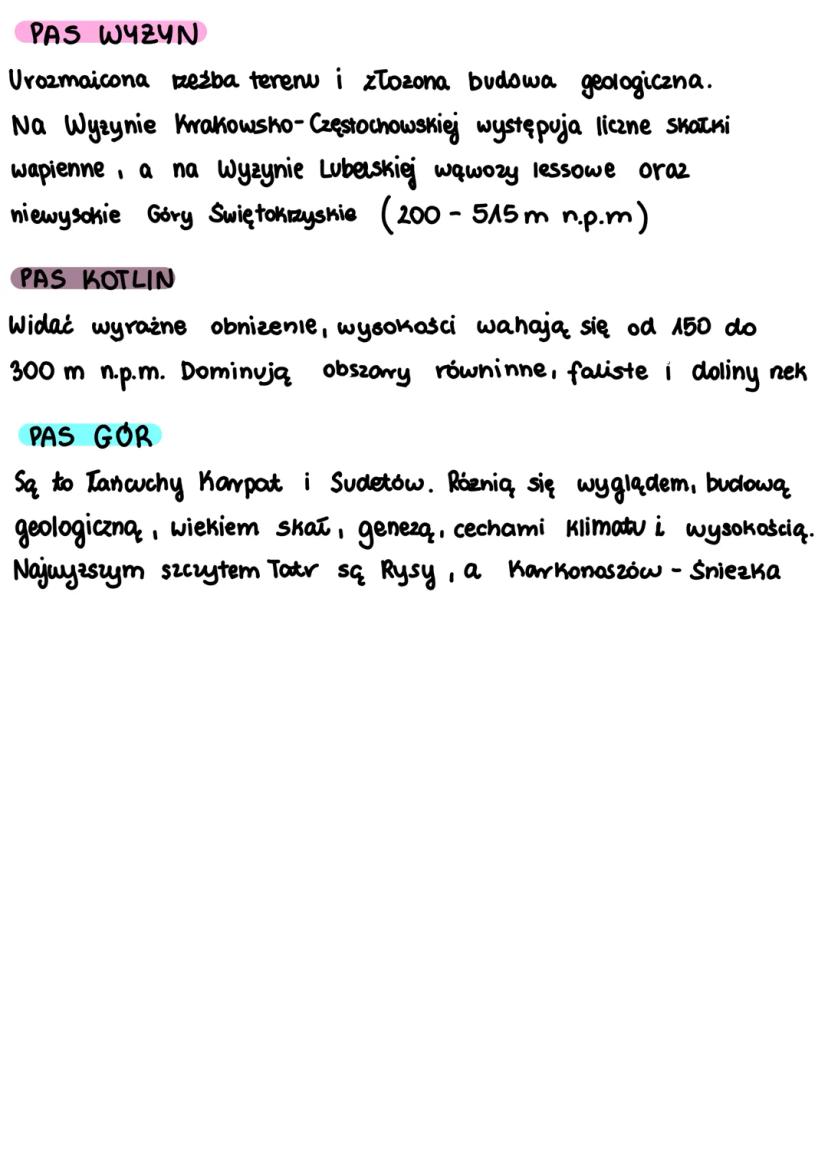 PAS WYŻYN
Urozmaicona rzeźba terenu i złożona budowa geologiczna.
Na Wyżynie Krakowsko-Częstochowskiej występują liczne skałki
wapienne, a na Wyżynie Lubelskiej wąwozy lessowe oraz
niewysokie Góry Świętokrzyskie (200 - 515 m n.p.m)
PAS KOTLIN
Widać wyraźne obniżenie, wysokości wahają się od 150 do
300 m n.p.m. Dominują obszary równinne, faliste i doliny rzek
PAS GÓR
Są to łańcuchy Karpat i Sudetów. Różnią się wyglądem, budową
geologiczną, wiekiem skał, genezą, cechami klimatu i wysokością.
Najwyższym szczytem Tatr są Rysy, a Karkonoszów - Śnieżka